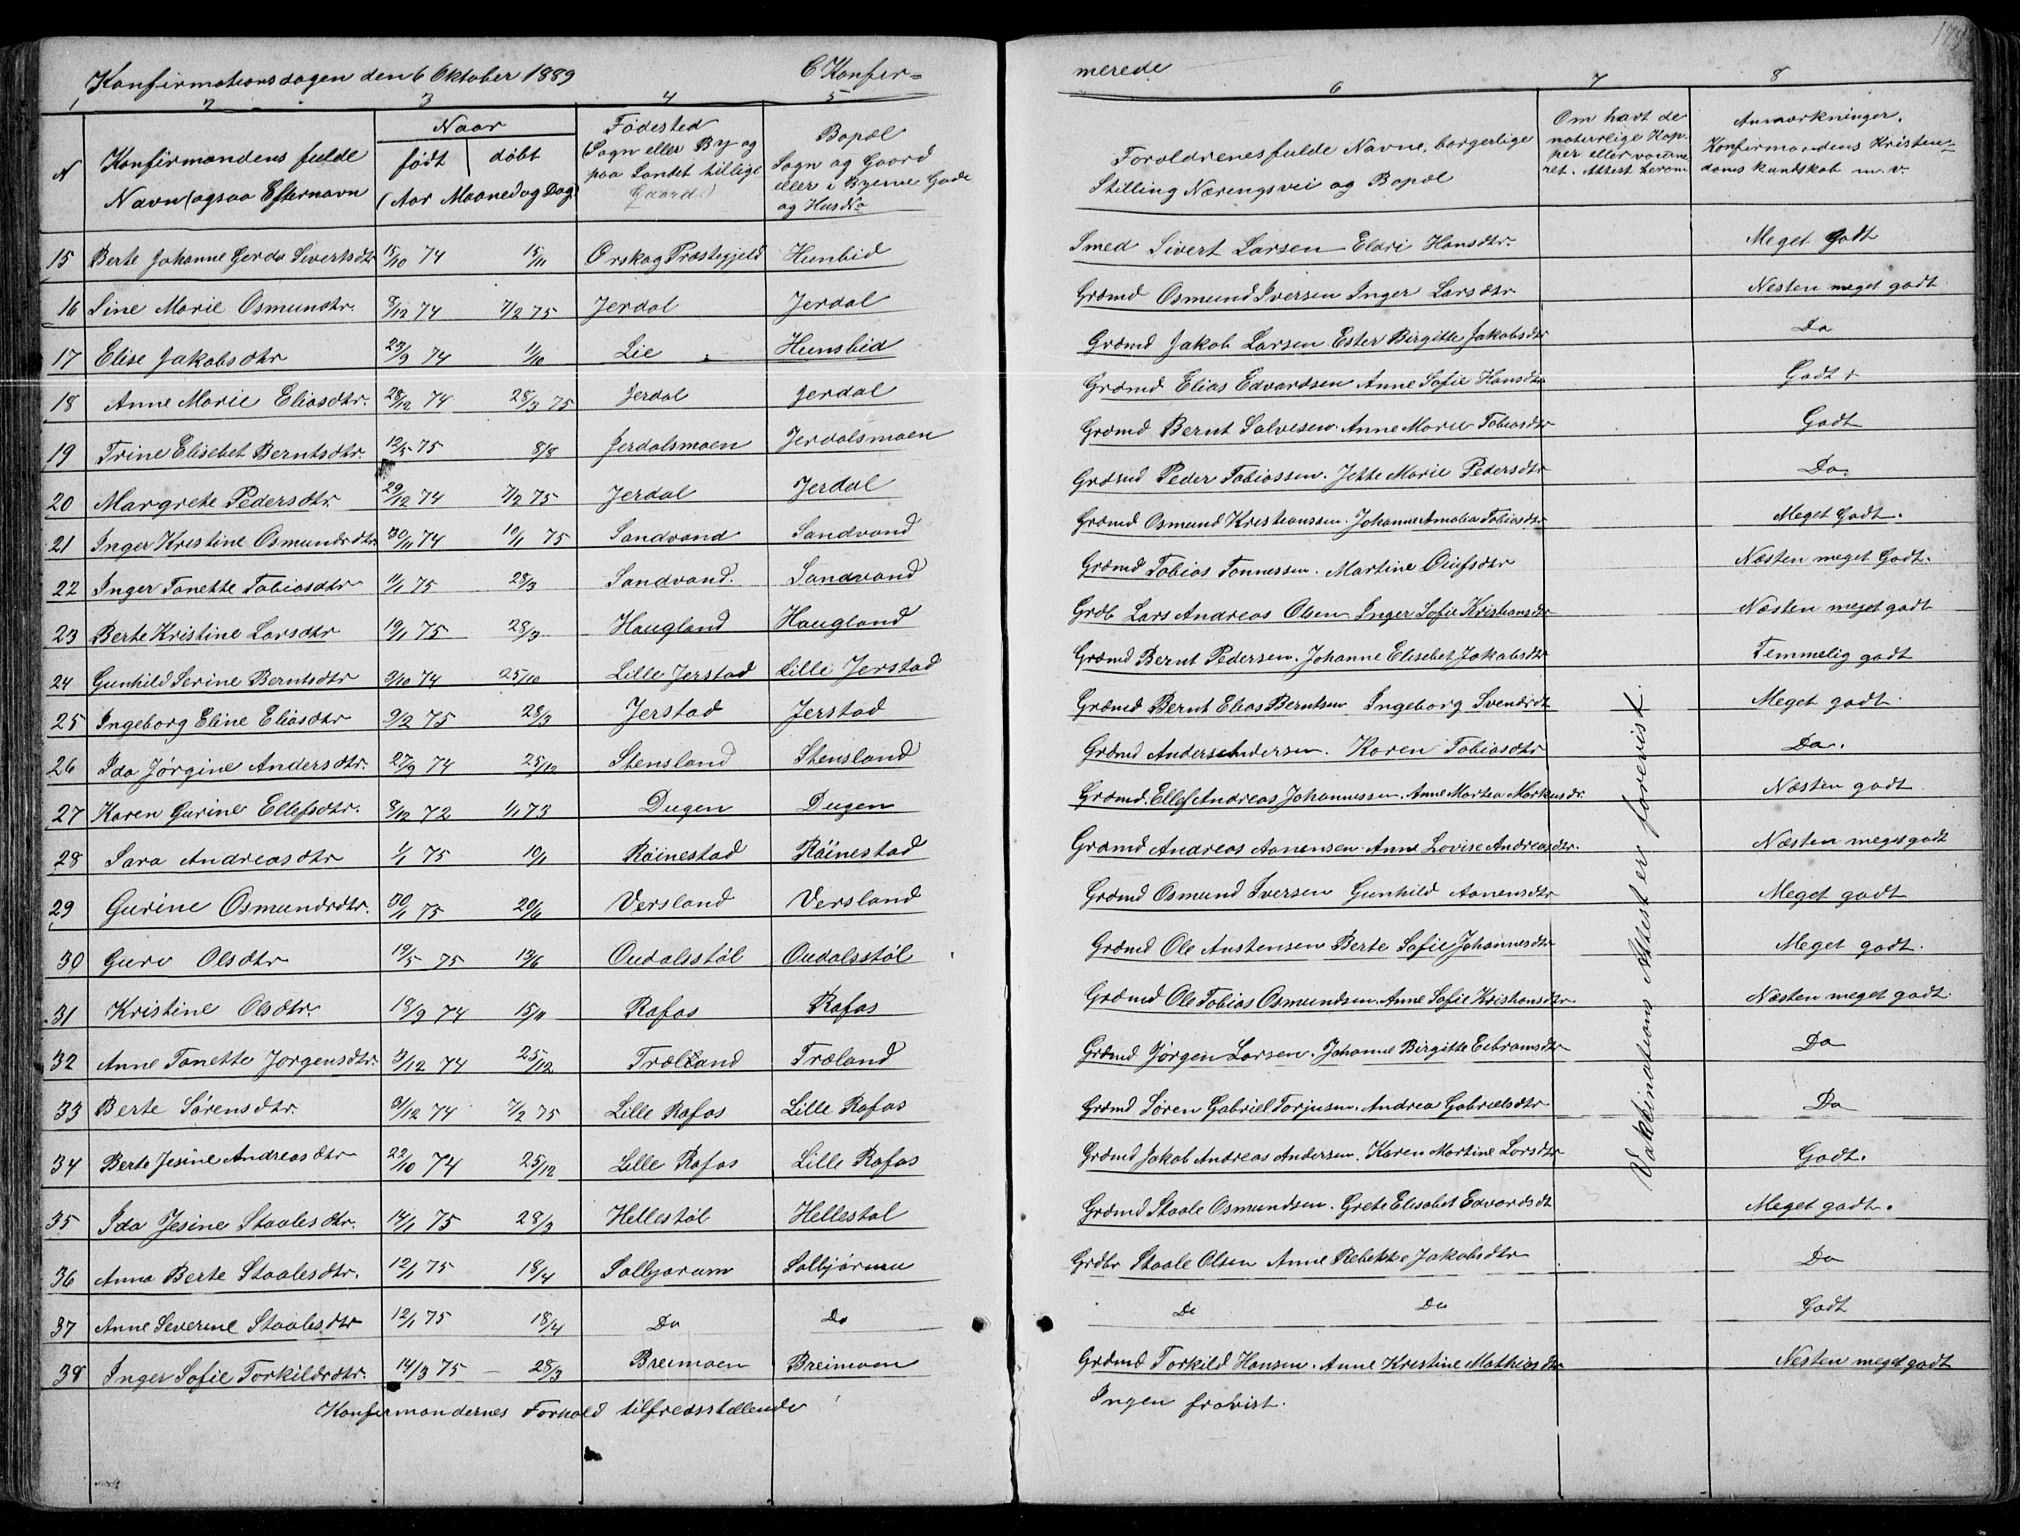 Konfirmationsdagen den 6 Oktober 1889 C Konfir=
merede
1 2 3 4 5 6 7 8
N
Konfirmandens fulde
Navn (ogsaa Efternavn
Naar
født døbt
(Aar Maaned og Dag)
Fødested
(Sogn eller By og
paa Landet tillige
Gaard.)
Bopæl
Sogn og Gaard
eller i Byerne Gade
og HusNo
Forældrenes fulde Navne, borgerlige
Stilling Næringsvei og Bopæl
Om havt de
naturlige Kop-
per eller vaccine-
ret. Attest herom
Anmærkninger.
Konfirmandens Kristen-
doms kundskab m. v.
15 Berte Johanne Gerda Sivertsdtr 15/10 74 15/11 Ørskog Præstegjeld Hunbid Smed Sivert Larsen Eldri Hansdtr. Meget godt
16 Sine Marie Osmundtr. 8/12 74 7/2 75 Jerdal Jerdal Grdmd Osmund Iversen Inger Larsdtr Nesten meget godt
17 Elise Jakobsdtr 23/9 74 11/10 Lie Hunsbid Grdmd Jakob Larsen Ester Birgitte Jakobsdtr Do
18 Anne Marie Eliasdtr. 28/12 74 28/3 75 Jerdal Jerdal Grdmd Elias Edvardsen Anne Sofie Hansdtr Godt +
19 Trine Elisebet Berntsdtr. 12/5 75 8/8 Jerdalsmoen Jerdalsmoen Grdmd Bernt Salvesen. Anne Marie Tobiasdtr Godt
20 Margrete Pedersdtr. 29/12 74 7/2 75 Jerdal Jerdal Grdmd Peder Tobiassen. Jette Marie Pedersdtr Do.
21 Inger Kristine Osmundsdtr. 30/11 74 10/1 75 Sandvand Sandvand Grdmd Osmund Kristianssen. Johanne Amalia Tobiasdtr Meget Godt.
22 Inger Tonette Tobiasdtr 1/1 75 28/3 Sandvand. Sandvand Grdmd Tobias Tønnessen. Martine Oliefsdtr Næsten meget Godt.
23 Berte Kristine Larsdtr 19/1 75 28/3 Haugland Haugland Grdb Lars Andreas Olsen Inger Sofie Kristiansdtr Næsten meget godt
24 Gunhild Serine Berntsdtr 9/10 74 25/10 Lille Jerstad Lille Jerstad Grdmd Bernt Pedersen. Johanne Elisebet Jakobsdtr Temmelig godt
25 Ingeborg Eline Eliasdtr 9/2 75 28/3 Jerstad Jerstad Grdmd Bernt Elias Berntsen Ingeborg Svendsdt Meget godt.
26 Ida Jørgine Andersdtr. 27/9 74 25/12 Stensland Stensland Grdmd Anders Andersen. Karen Tobiasdtr Do.
27 Karen Gurine Ellefsdtr. 8/12 72 1/1 73 Dugen Dugen Grdmd. Ellef Andreas Johannessen. Anne Martea Markusdr. Næsten godt
28 Sara Andreasdtr 1/1 75 10/1 Röinestad Röinestad Grdmd Andreas Aanensen. Anne Lovise Andreasdtr. Næsten meget godt
29 Gurine Osmundsdtr. 30/1 75 20/6 Versland Versland Grdmd Osmund Iversen Gunhild Aanensdtr Meget godt
30 Guro Olsdtr 19/5 75 13/6 Oudalsstøl Oudalsstøl Grdmd Ole Austensen Berte Sofie Johannesdtr Meget godt.
31 Kristine Olsdtr. 18/9 74 15/11 Rafos Rafos Grdmd Ole Tobias Osmundsen. Anne Sofie Kristiansdtr Næsten meget godt
32 Anne Tonette Jørgensdtr. 3/12 74 25/12 Træland Træland Grdmd Jørgen Larsen. Johanne Birgitte Eebramsdtr Do
33 Berte Sørensdtr. 9/12 74 7/2 75 Lille Rafos Lille Rafos Grdmd Søren Gabriel Torjusen. Andrea Gabrielsdtr Do
34 Berte Jesine Andreasdtr 22/10 74 25/12 Lille Rafos Lille Rafos Grdmd Jakob Andreas Andersen. Karen Martine Larsdtr Godt.
35 Ida Jesine Staalesdtr. 14/1 75 28/3 Hellestøl Hellestøl Grdmd Staale Osmundsen. Grete Elisabet Edvardsdt Meget godt.
36 Anna Berte Staalesdtr. 12/1 75 18/4 Solbjørum Solbjørum Grdbr Staale Olsen Anne Rebekke Jakobsdtr Do
37 Anne Severine Staalesdtr 12/1 75 18/4 Do Do Do Do Godt
38 Inger Sofie Torkildsdtr. 14/3 75 28/3 Breimoen Breimoen Grdmd Torkild Hansen. Anne Kristine Mathiasdtr Næsten meget godt
Vakkinations Attest er forevist.
Konfirmandernes Forhold tilfredsstillende
Ingen fravist.